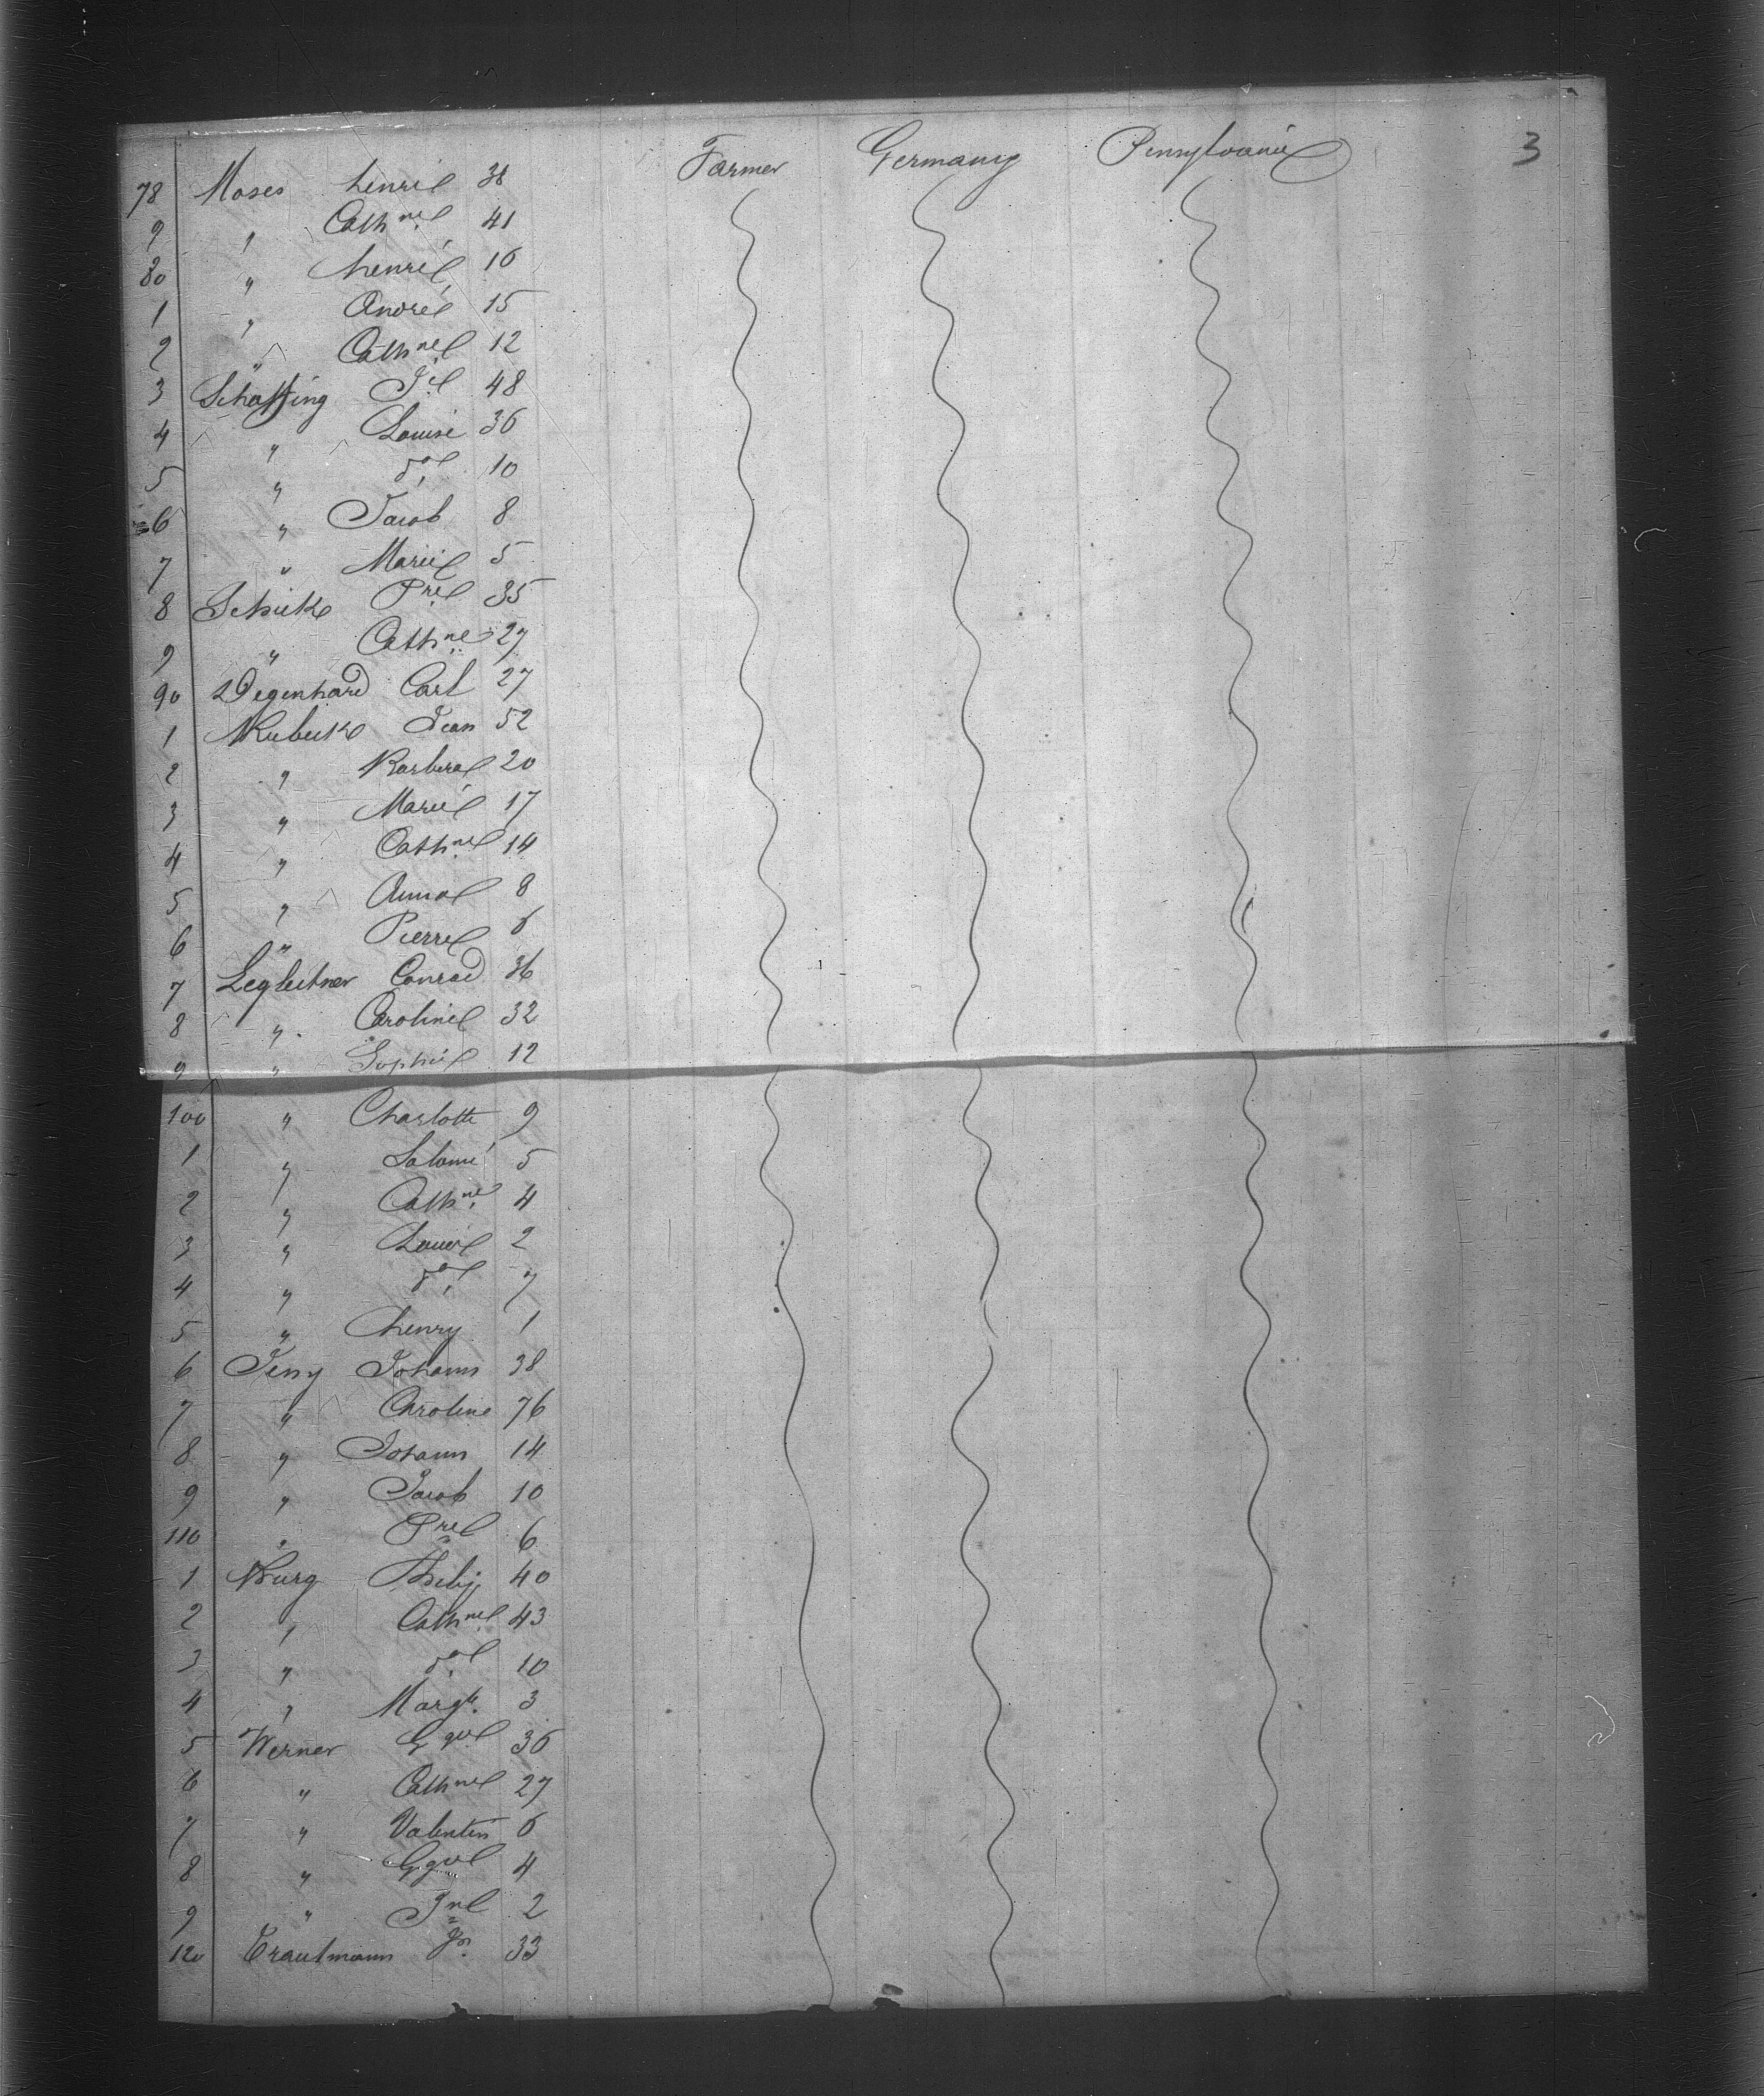 3
78 Moses henri 38 Farmer Germany Pensylvanie
9 " Cathne 41
80 " henri 16
1 " André 15
2 " Cathne 12
3 48
4 " Louise 36
5 " do 10
6 " Jacob 8
7 " Marie 5
8 Pre 35
9 " Cathne 27
90 Degenhard Carl 27
1 Jean 52
2 " Barbera 20
3 " Marie 17
4 " Cathne 14
5 " Anna 8
6 " Pierre 6
7 Legleitner Conrad 36
8 " Caroline 32
9 " Sophie 12
100 " Charlotte 9
1 " Salomé 5
2 " Cathne 4
3 " Louise 2
4 " do 7
5 " henry 1
6 Jeny Johann 38
7 " Caroline 76
8 " Johann 14
9 " Jacob 10
110 " Pre 6
1 Burg 40
2 " Cathne 43
3 " do 10
4 " Margte 3
5 Werner Gge 36
6 " Cathne 27
7 " Valentin 6
8 " Gge 4
9 " 2
120 Trautmann Jn 33